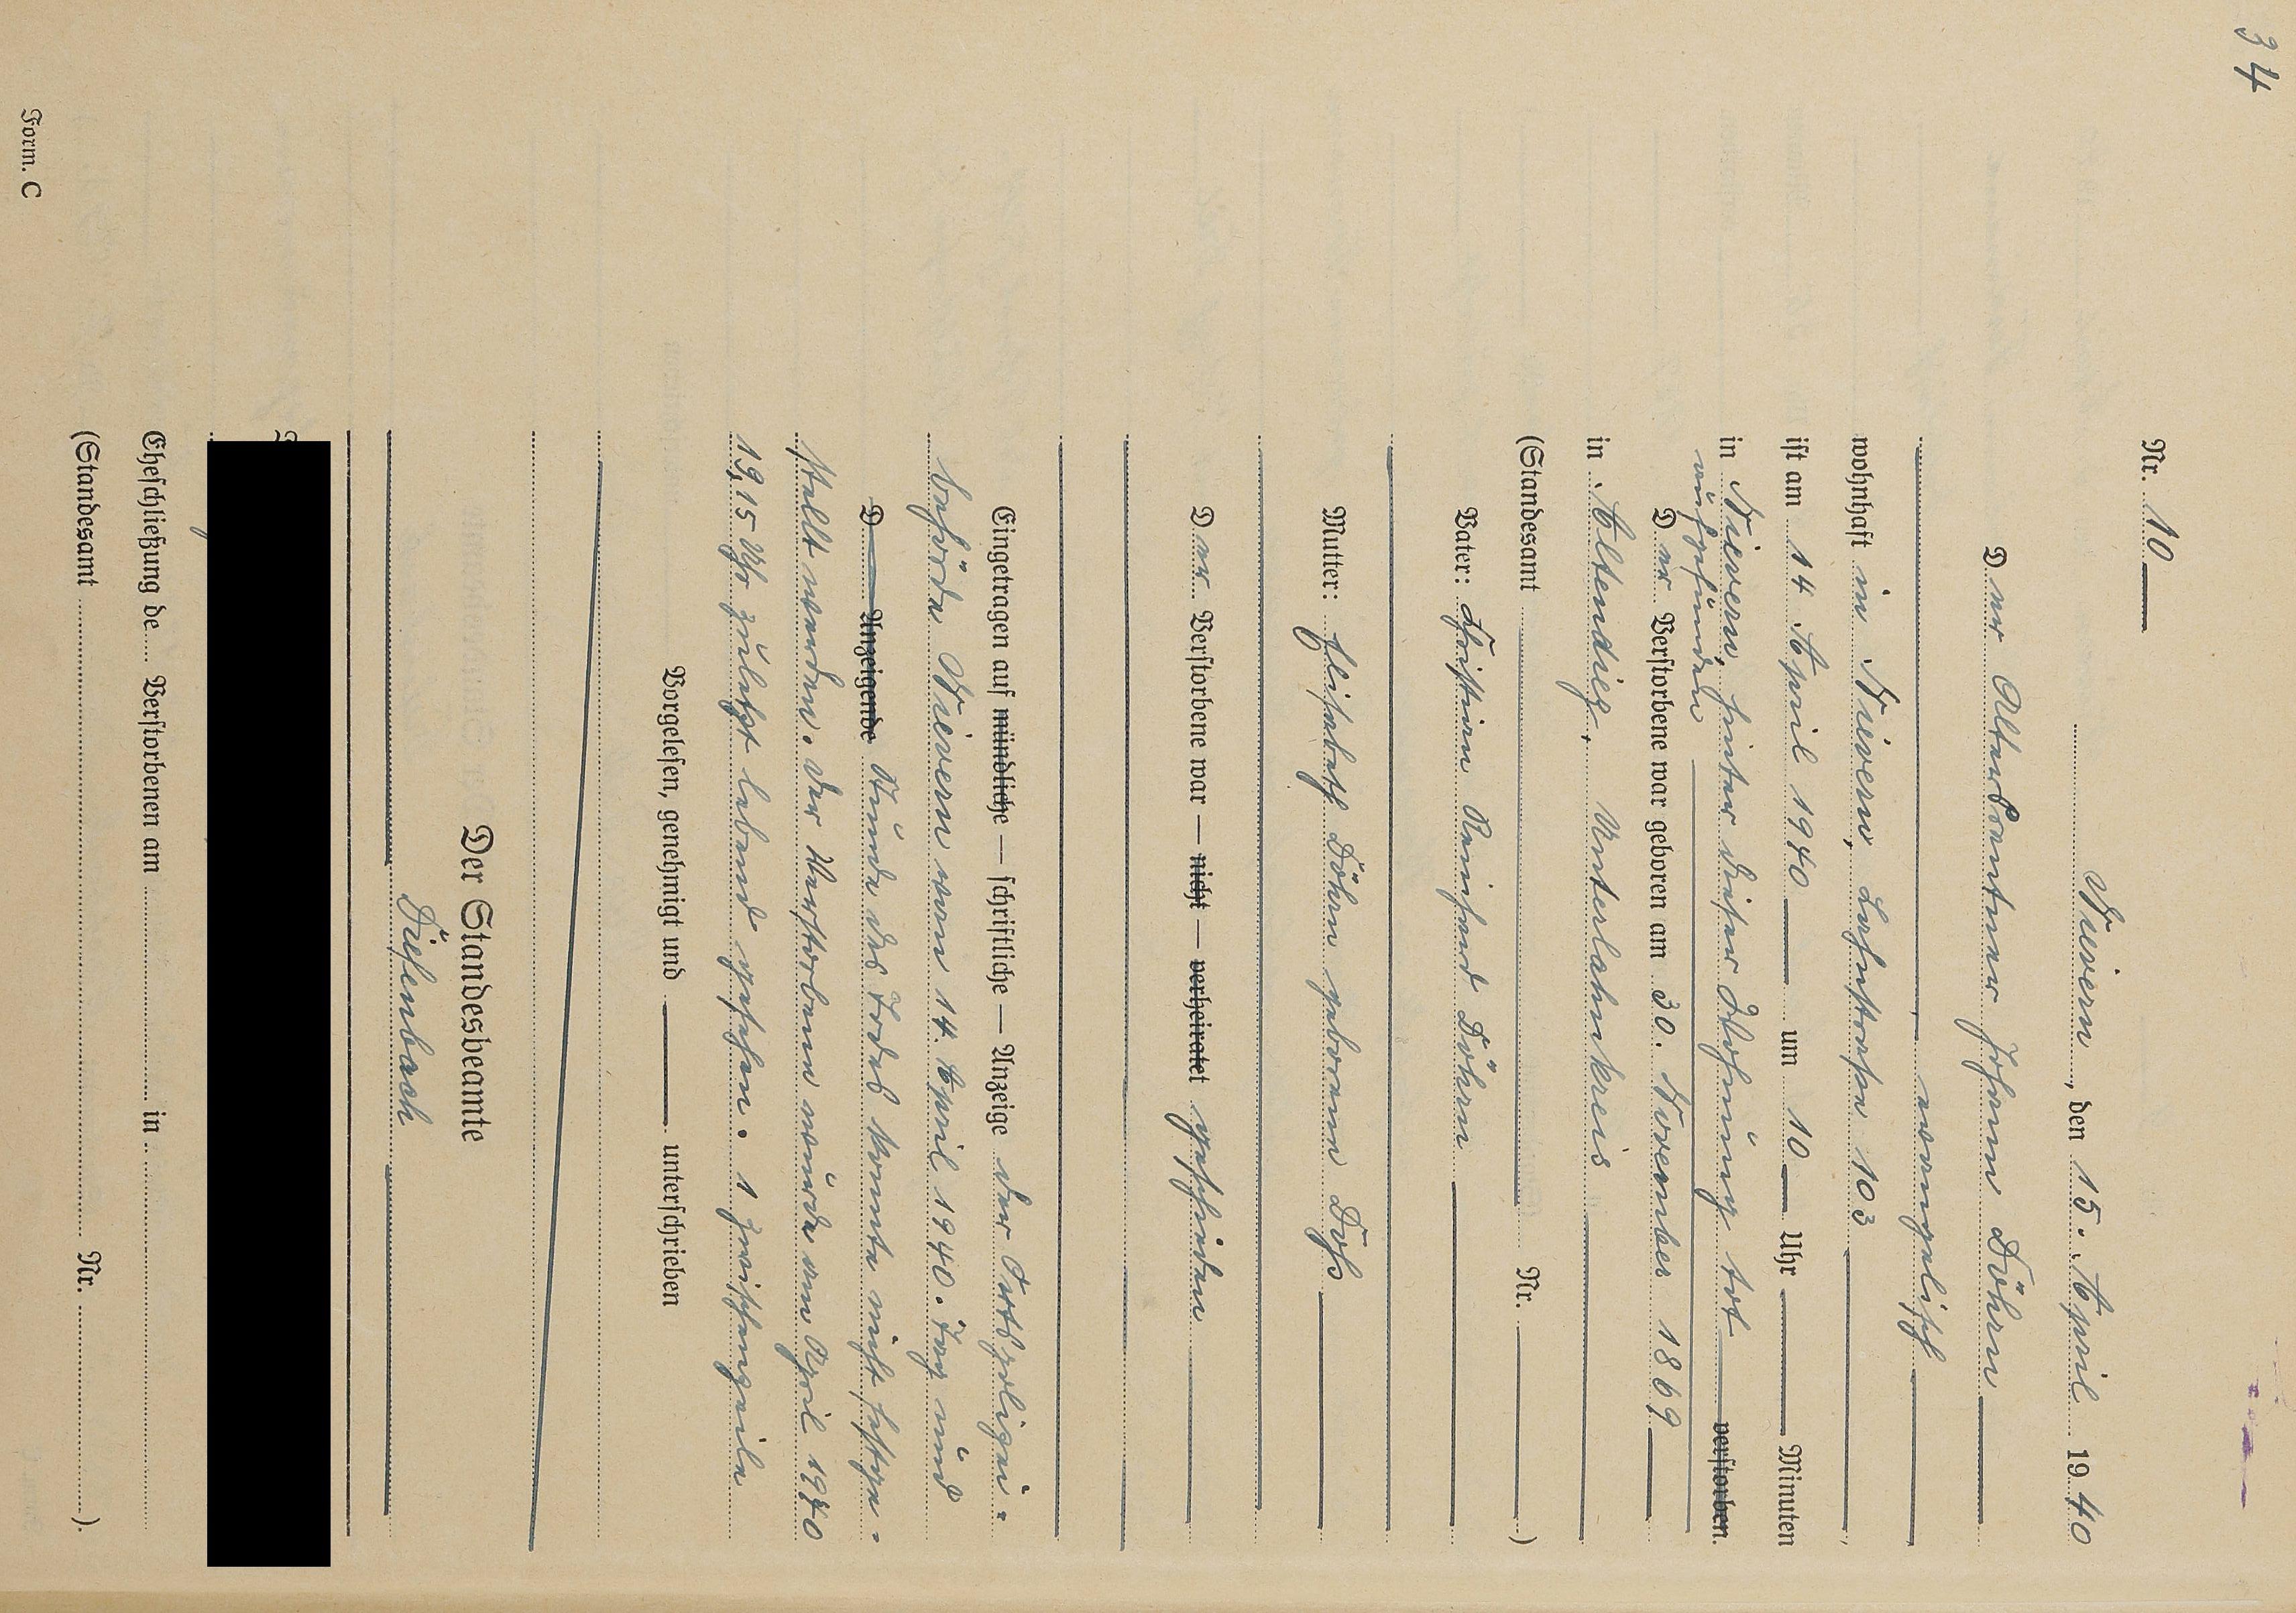 34
Nr. 10
Nievern, den 15. April 1940
Der Altersrentner Johann Döhrn
evangelisch
wohnhaft in Nievern, Lahnstraße 103
ist am 14 April 1940 um 10 Uhr Minuten
in Nievern, hinter dieser Wohnung tot verstorben.
aufgefunden
Der Verstorbene war geboren am 30. November 1869
in Altendiez, Unterlahnkreis
(Standesamt Nr. )
Vater: Christian Reinhard Döhrn
Mutter: Elisabeth Döhrn geborene
Der Verstorbene war — nicht — verheiratet geschieden
Eingetragen auf mündliche — schriftliche — Anzeige der Ortspolizei-
behörde Nievern vom 14. April 1940. Tag und
D Anzeigende Stunde des Todes konnte nicht festge-
stellt werden. Der Verstorbene wurde am April 1940
19,15 Uhr zuletzt lebend gesehen. 1 Zwischenzeile
Vorgelesen, genehmigt und unterschrieben
Der Standesbeamte
Eheschließung de Verstorbenen am in
(Standesamt Nr. ).
Form. C